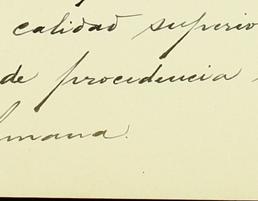 calidad superio
de procedencia
mana.